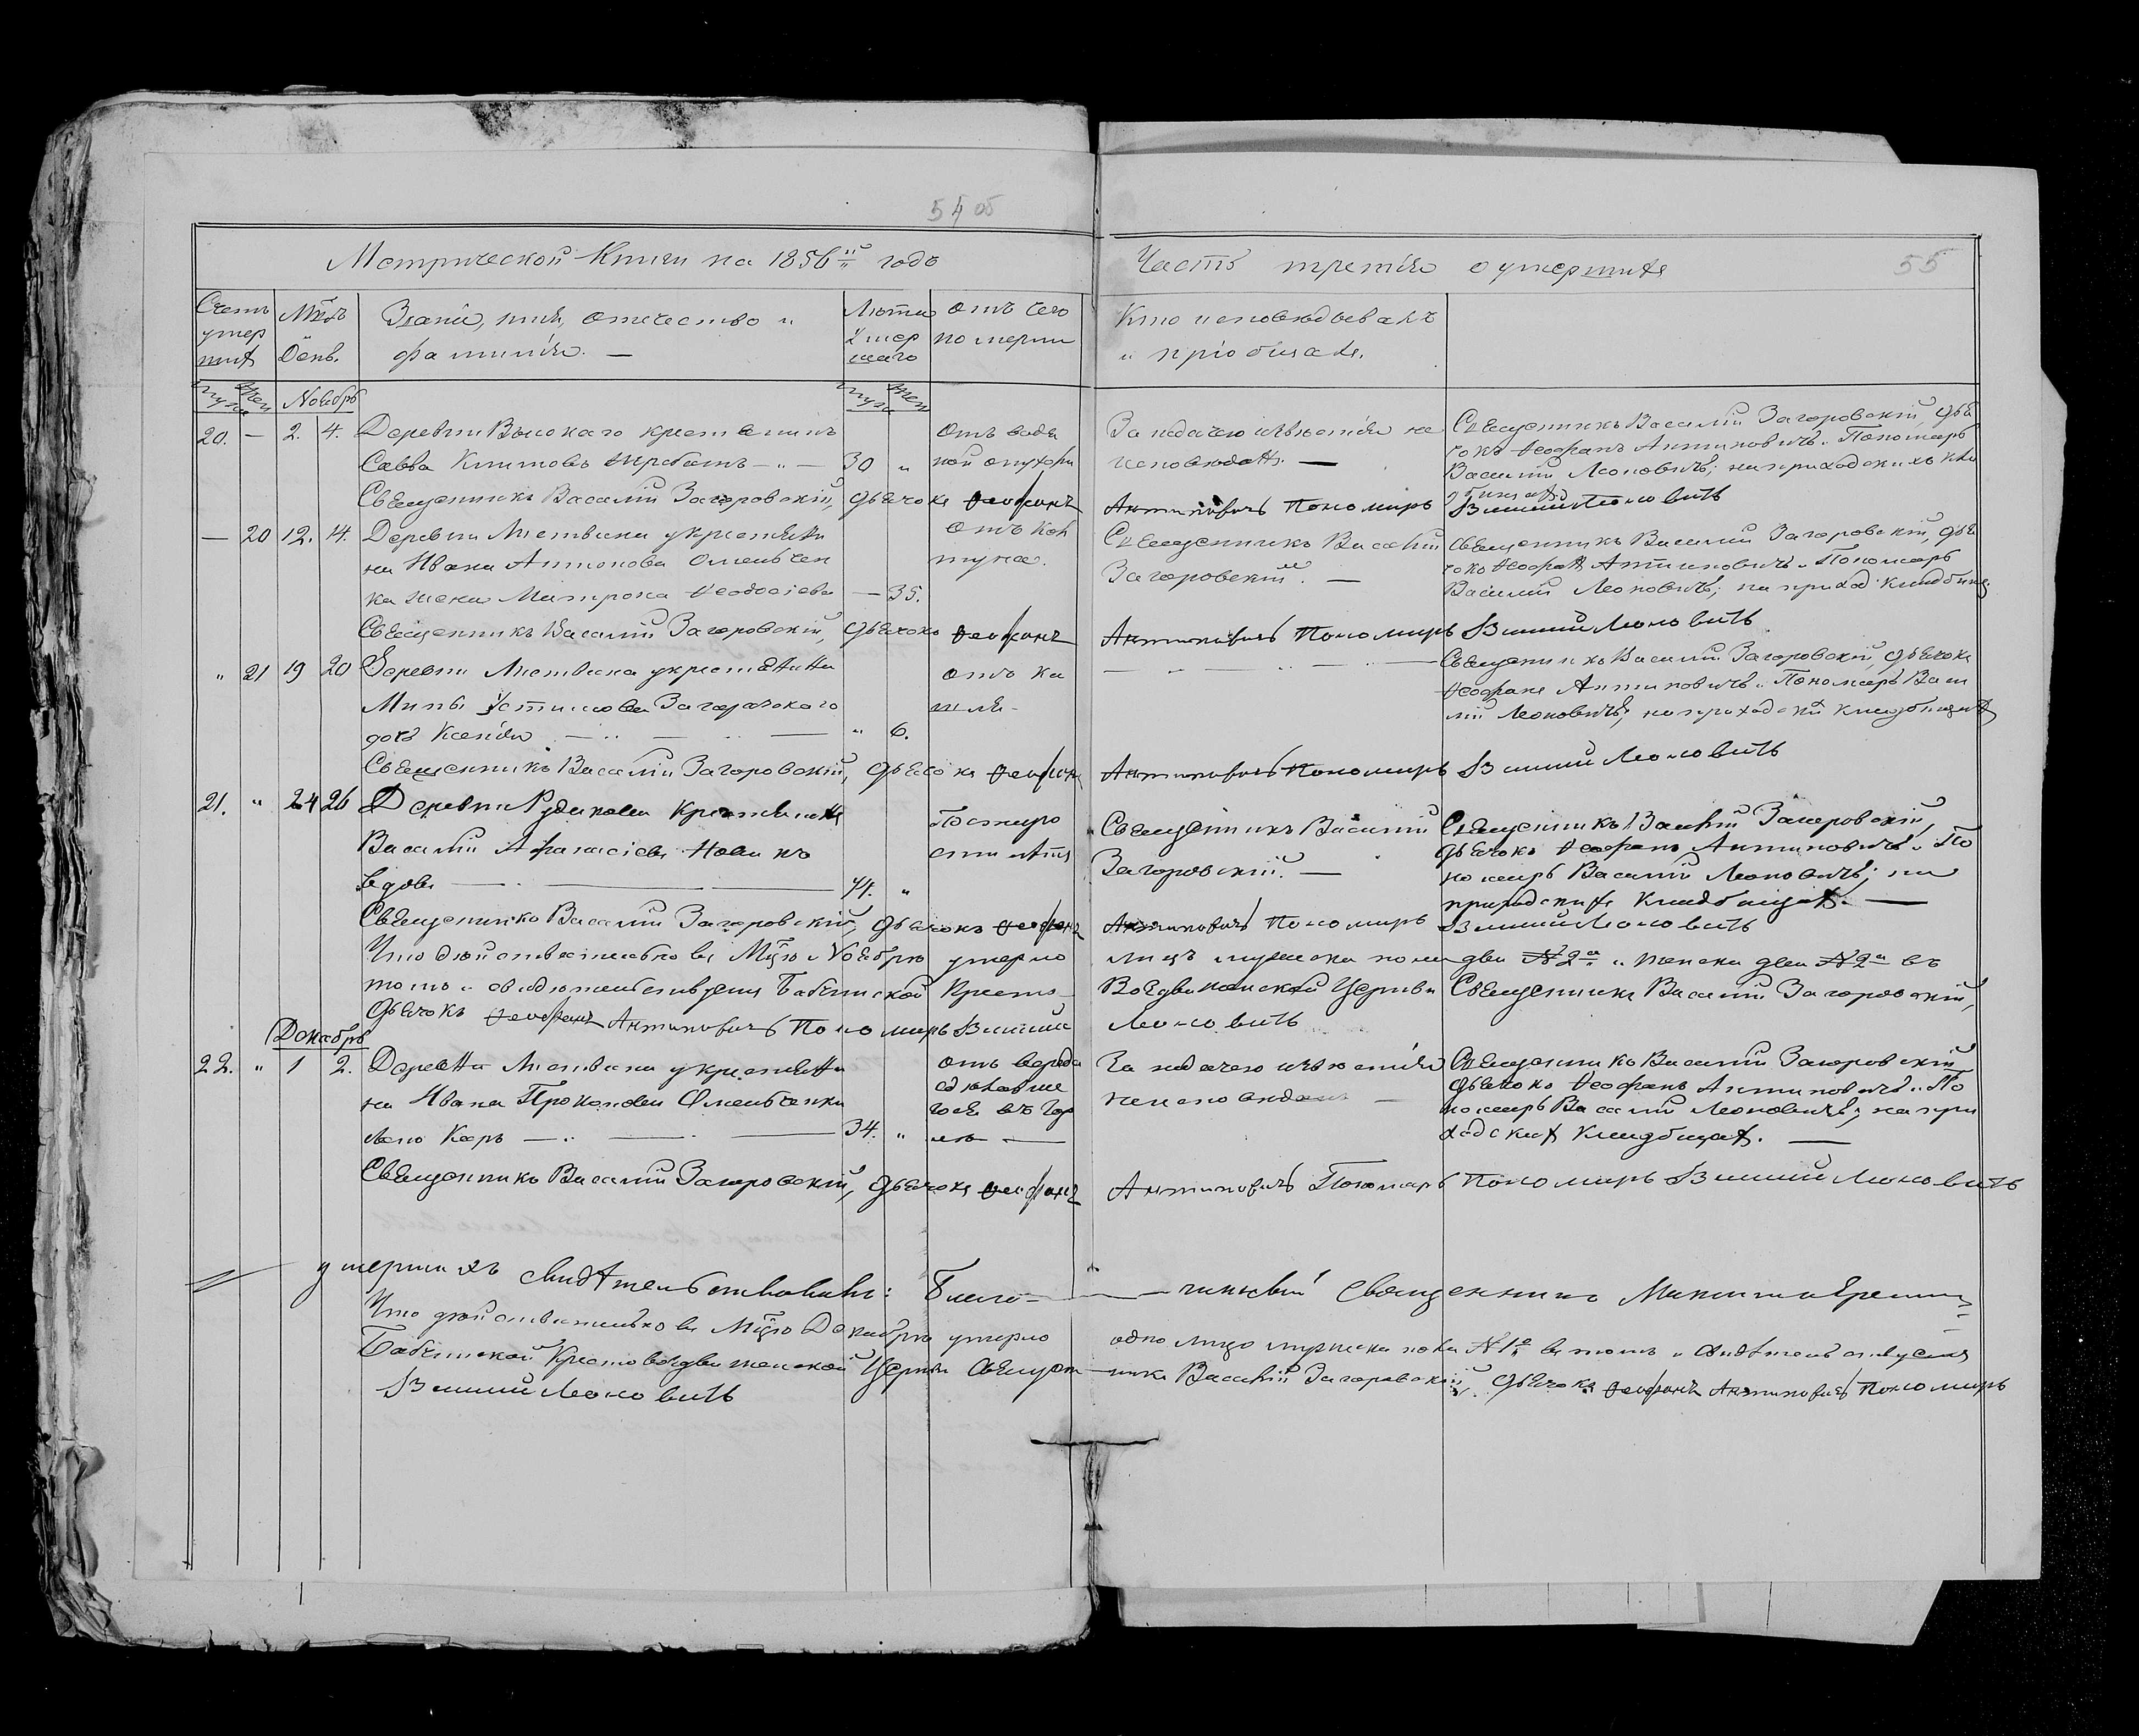 54 об
Метрической Книги на 1856й годъ
Часть третія о умершихъ
55
Счетъ умершихъ
Мѣсяцъ День.
Званіе, имя, отечество и фамилія. —
Лѣта Умершаго
отъ чего померли
Кто исповѣдывалъ и пріобщалъ.
муж жен
Ноябрь
муж жен
20. — 2. 4. Деревни Высокаго крестьянинъ
Савва Климовъ — „ — 30 „
отъ водяной опухоли
За недачею извѣстія не
исповѣданъ. —
Священникъ Василій Загоровскій, дья
чокъ Ѳеофанъ Антиновичъ и Пономарь
Василій Леоновичъ; на приходскихъ кла
дбищахъ
Священникъ Василій Загоровскій, дьячокъ Ѳеофанъ Антиновичъ Пономарь Василій Леоновичъ
— 20 12. 14. Деревни Листвина у крестьяни
на Ивана Антонова Омельчен
ка жена Матрона Ѳеодосіева — 35.
отъ кол
туна.
Священникъ Василій
Загоровскій. —
Священникъ Василій Загоровскій, дья
чокъ Ѳеофанъ Антиновичъ и Пономарь
Василій Леоновичъ; на приход кладбищ
Священникъ Василій Загоровскій, дьячокъ Ѳеофанъ Антиновичъ Пономарь Василій Леоновичъ
„ 21 19 20 Деревни Листвина у крестьянина
Мины Устинова Загородского
дочь Ксенія — „ — „ — „ 6.
отъ ка
шля —
Священникъ Василій Загоровскій, дьячокъ
Ѳеофанъ Антиновичъ и Пономарь Васи
лій Леоновичъ, на приходскихъ кладбищахъ
Священникъ Василій Загоровскій, дьячокъ Ѳеофанъ Антиновичъ Пономарь Василій Леоновичъ
21. „ 24 26 Деревни Рудакова Крестьянинъ
Василій Афанасіевъ Новикъ
вдовъ — 74. „
По старо
сти лѣтъ
Священникъ Василій
Загоровскій. —
Священникъ Василій Загоровскій,
дьячокъ Ѳеофанъ Антиновичъ и По
номарь Василій Леоновичъ; на
приходскихъ Кладбищахъ. —
Священникъ Василій Загоровскій, дьячокъ Ѳеофанъ Антиновичъ Пономарь Василій Леоновичъ
Что дѣйствительно въ Мцѣ Ноябрѣ умерло лицъ мужеска пола два №2а и женска два №2а въ
томъ и свидѣтельствуемъ Бабчинской Кресто-Воздвиженской Церкви Священникъ Василій Загоровскій,
дьячокъ Ѳеофанъ Антиновичъ Пономарь Василій Леоновичъ
Декабрь
22. „ 1 2. Деревни Листвина у крестьяни
на Ивана Прокопова Омельченка
сынъ Карпъ — „ — 34. „
отъ вереда
сдѣлавше
гося въ гор
лѣ —
За недачею извѣстія
не исповѣданъ —
Священникъ Василій Загоровскій
дьячокъ Ѳеофанъ Антиновичъ и По
номарь Василій Леоновичъ; на при
ходскихъ Кладбищахъ. —
Священникъ Василій Загоровскій, дьячокъ Ѳеофанъ Антиновичъ Пономарь Пономарь Василій Леоновичъ
умершихъ свидѣтельствовалъ: Благо— —чинный Священникъ
Что дѣйствительно въ Мцѣ Декабрѣ умерло одно лицо мужеска пола №1о въ томъ и свидѣтельствуемъ
Бабчинской Крестовоздвиженской Церкви Священникъ Василій Загоровскій, Дьячокъ Ѳеофанъ Антиновичъ Пономарь
Василій Леоновичъ